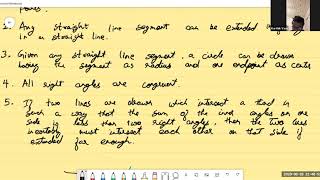 2. Any straight line segment can be extended
in a straight line.
3. Given any straight line segment, a circle can be drawn
having the segment as radius and one endpoint as
4. All right angles are congruent.
5. If two lines are drawn which intersect a third in
such a way that the sum of the inner angles on one
side is less than two right angles, then the two lines
inevitably must intersect each other on that side if
extended far enough.